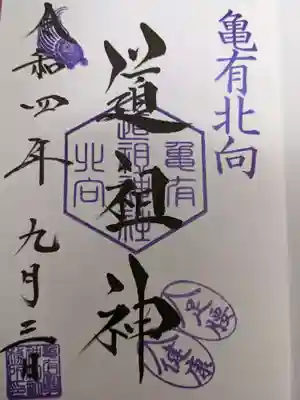 亀有北向
道祖神
亀有
道祖神社
北向
足腰
健康
令和四年 九月三日